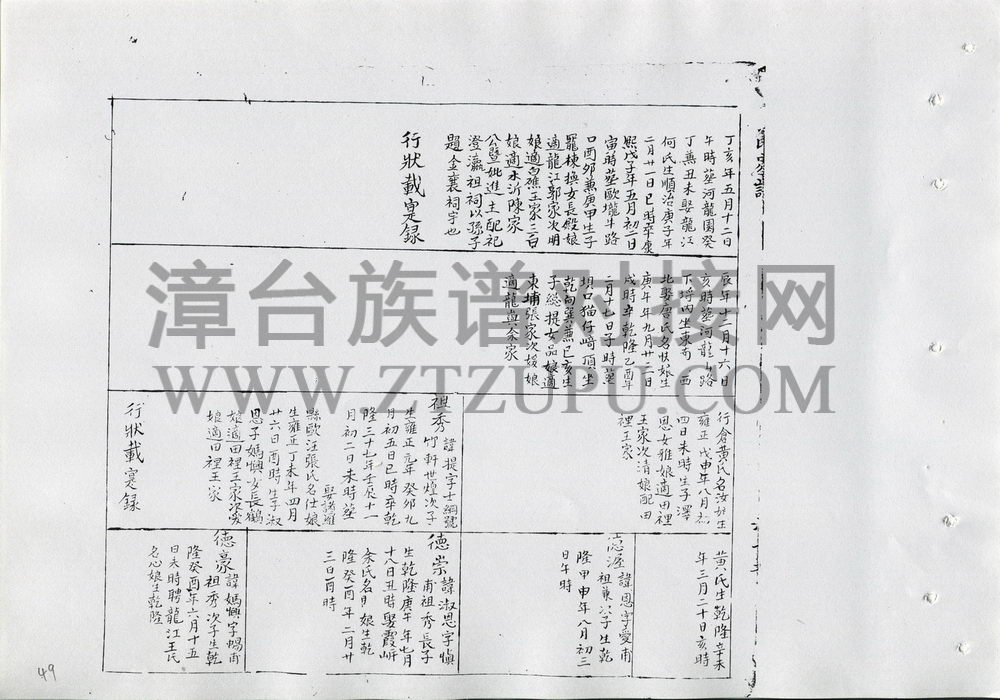 丁亥年五月十二日
午時葬河龍園癸
丁兼丑未娶龍江
何氏生順治庚子年
二月廿一日巳時卒康
熙戊子年五月初二日
寅時葬歐壠半路
口酉夘兼庚甲生子
龍棟換女長殿娘
適龍江郭家次明
娘適白礁王家三
娘適水沂陳家
公暨妣進士配祀
澄瀛祖祠以孫子
題金襄祠宇也
行狀載寔録
辰年十二月十六日
亥時葬河龍山路
下坪四坐東南向西
北娶詹氏名快娘生
庚午年九月廿二日
戌時卒乾隆乙酉年
二月十七日子時葬
垻口猫仔崎頂坐
乾向巽兼巳亥生
子総提女品娘適
東埔張家次媛娘
適龍與余家
行倉黃氏名汝娘生
雍正戊申年八月初
四日未時生子澤
恩女雅娘適田裡
王家次清娘配田
裡王家
祖秀 諱提字士綱號
竹軒世煌次子
生雍正元年癸卯九
月初五日巳時卒乾
隆三十七年壬辰十一
月初二日未時葬
娶諸羅
縣歐汪張氏名仕娘
生雍正丁未年四月
廿六日酉時生子淑
恩子媽興女長鶴
娘適田裡王家次
娘適田裡王家
行狀載寔録
黃氏生乾隆辛未
年三月二十日亥時
諱恩字愛甫
祖東次子生乾
隆甲申年八月初三
日午時
德崇 諱淑恩字慎
甫祖秀長子
生乾隆庚午年七月
十八日丑時娶霞㟁
余氏名 娘生乾
隆癸酉年二月廿
三日酉時
德豪 諱媽興字暢甫
祖秀次子生乾
隆癸酉年六月十五
日未時聘龍江王氏
名心娘生乾隆
49
漳台族谱对接网
WWW.ZTZUPU.COM